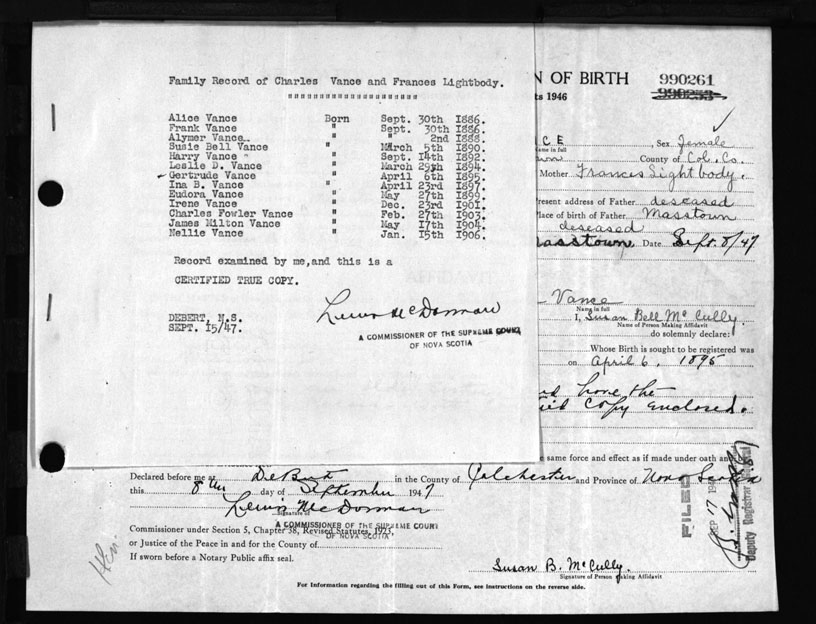 Family Record of Charles Vance and Frances Lightbody.
""""""""""""""""""""
Alice Vance Born Sept. 30th 1886.
Frank Vance " Sept. 30th 1886.
Alymer Vance.. " " 2nd 1888.
Susie Bell Vance " March 5th 1890.
Harry Vance " Sept. 14th 1892.
Leslie D. Vance " March 29th 1894.
Gertrude Vance " April 6th 1895.
Ina B. Vance " April 23rd 1897.
Eudora Vance " May 27th 1899.
Irene Vance " Dec. 23rd 1901.
Charles Fowler Vance " Feb. 27th 1903.
James Milton Vance " May 17th 1904.
Nellie Vance " Jan. 15th 1906.
Record examined by me,and this is a
CERTIFIED TRUE COPY.
DEBERT, N.S.
SEPT. 15/47.
Lewis McDorman
A COMMISSIONER OF THE SUPREME COURT
OF NOVA SCOTIA
N OF BIRTH 990261
990253
ts 1946
C E Sex Female
Name in full
County of Col. Co.
Mother Frances Lightbody.
resent address of Father deceased
lace of birth of Father Masstown
deceased
Masstown Date Sept. 8/47
Vance
Name in full
I, Susan Bell McCully.
Name of Person Making Affidavit
do solemnly declare:
Whose Birth is sought to be registered was
on April 6, 1895
and have the
Copy enclosed.
e same force and effect as if made under oath and
Declared before me at DeBert in the County of Colchester and Province of Nova Scotia
this 8th day of September 1947
Lewis McDorman
Signature of
A COMMISSIONER OF THE SUPREME COURT
OF NOVA SCOTIA
Commissioner under Section 5, Chapter 38, Revised Statutes, 1923,
or Justice of the Peace in and for the County of
If sworn before a Notary Public affix seal.
Susan B. McCully.
Signature of Person Making Affidavit
For Information regarding the filling out of this Form, see instructions on the reverse side.
FILED
SEP 17 194
Deputy Registrar